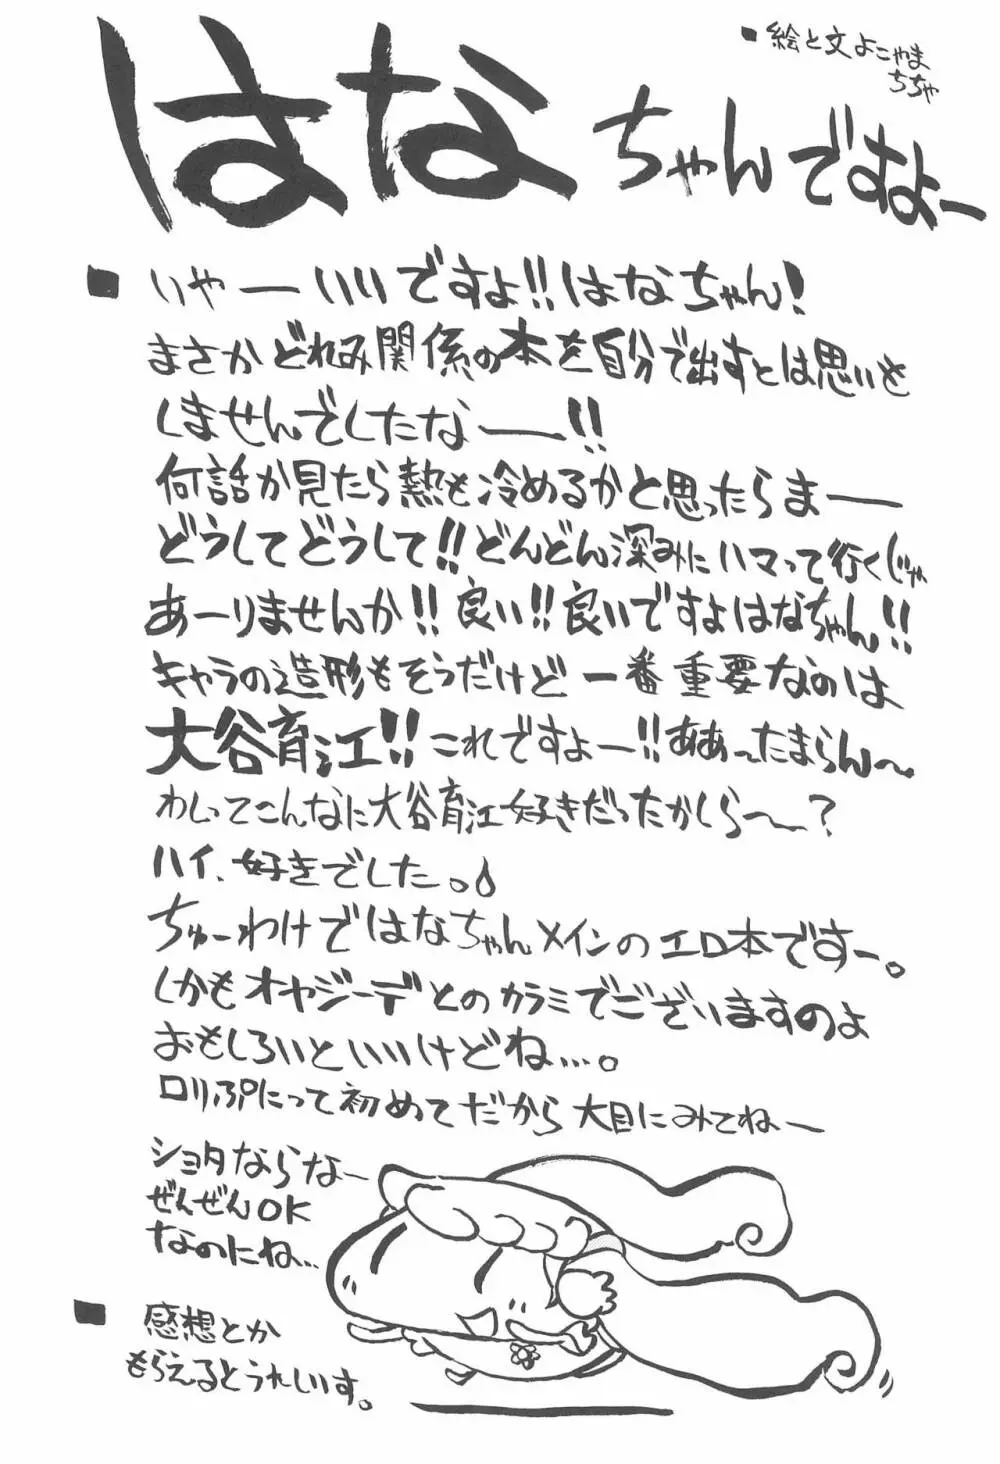 はなちゃんですよー
■絵と文よこやま
ちちゃ
■いやーいいですよ!!はなちゃん!
まさかどれみ関係の本を自分で出すとは思いも
しませんでしたなー!!
何話か見たら熱も冷めるかと思ったらまー
どうしてどうして!!どんどん深みにハマって行くじゃ
あーりませんか!!良い!!良いですよはなちゃん!!
キャラの造形もそうだけど一番重要なのは
大谷育江!!これですよー!!ああーたまらん〜
わしってこんなに大谷育江好きだったかしら〜?
ハイ、好きでした。
ちゅーわけではなちゃんメインのエロ本ですー。
しかもオヤジーデとのカラミでございますのよ
おもしろいといいけどね…。
ロリぷにって初めてだから大目にみてねー
ショタならなー
ぜんぜんOK
なのにね…
■感想とか
もらえるとうれしいす。